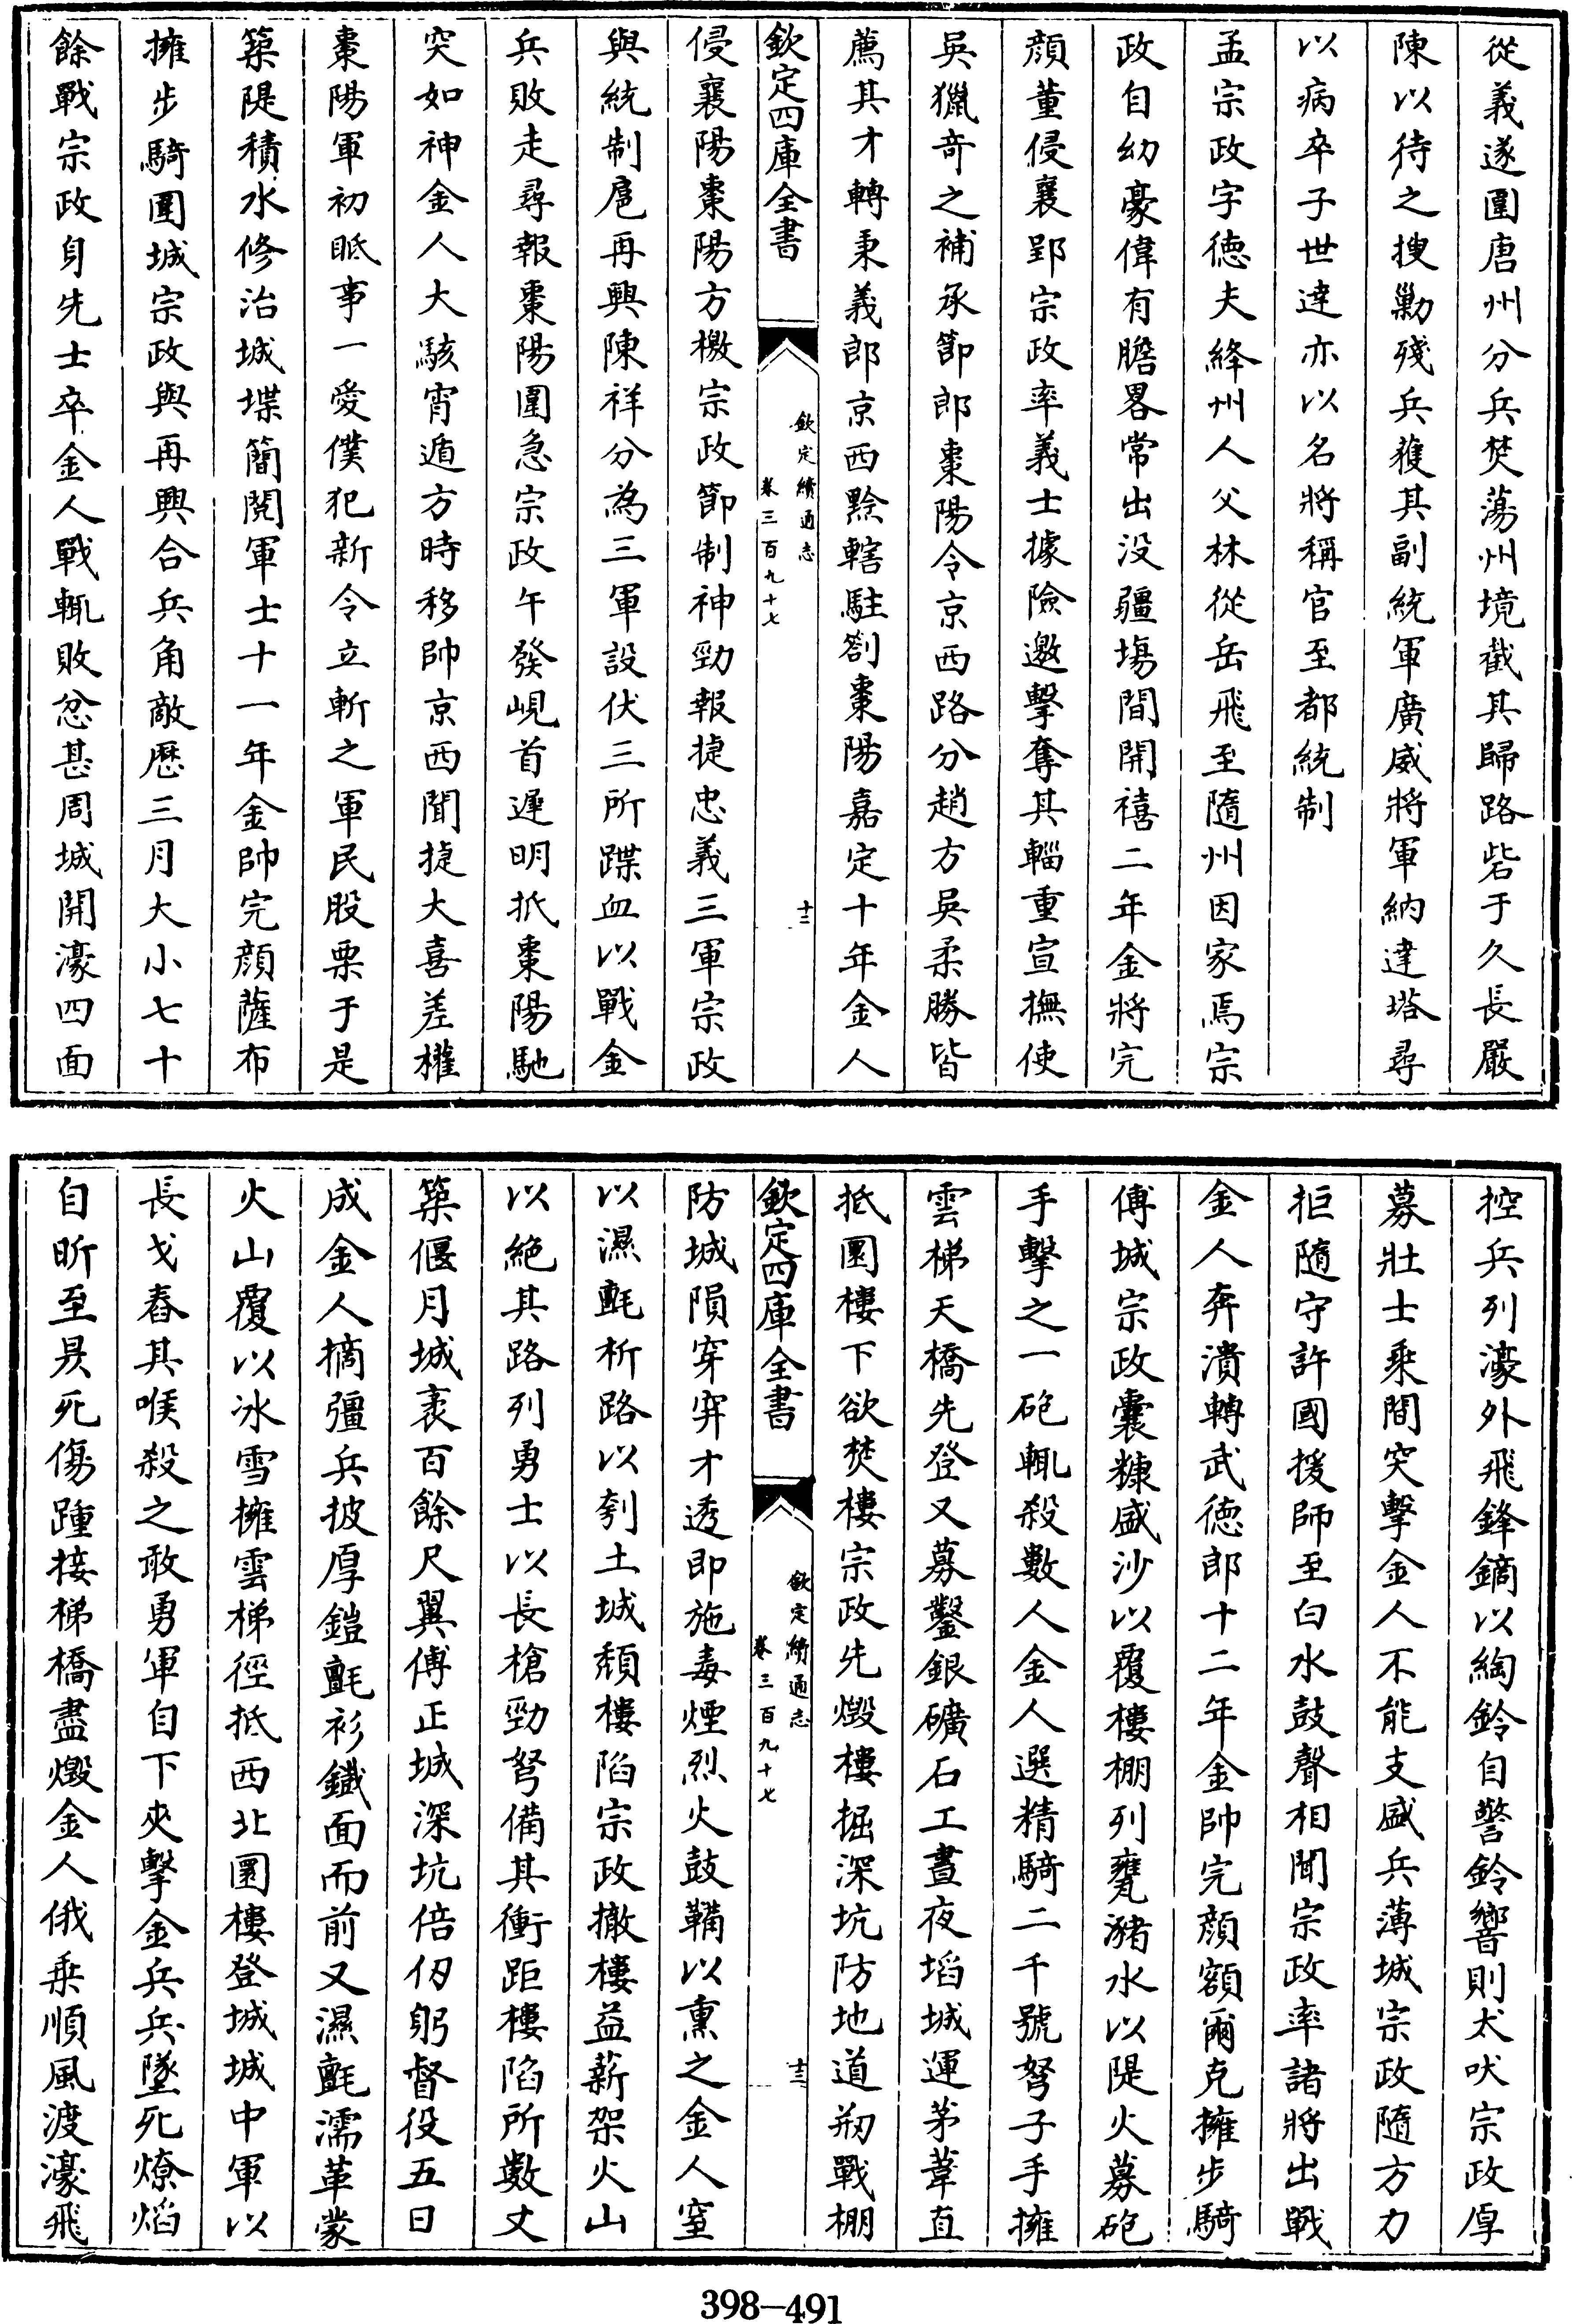 從義遂圍唐州分兵焚蕩州境截其歸路砦于久長嚴
陳以待之搜勦殘兵獲其副統軍廣威將軍納達塔尋
以病卒子世達亦以名將稱官至都統制
孟宗政字徳夫絳州人父林從岳飛至隨州因家焉宗
政自幼豪偉有膽畧常出沒疆場間開禧二年金將完
顔董侵襄郢宗政率義士據險邀擊奪其輜重宣撫使
吳獵奇之補承節郎棗陽令京西路分趙方吳柔勝皆
薦其才轉秉義郎京西黔轄駐劄棗陽嘉定十年金人
欽定四庫全書
欽定續通志
卷三百九十七
十二
侵襄陽棗陽方檄宗政節制神勁報捷忠義三軍宗政
與統制扈再興陳祥分為三軍設伏三所蹀血以戰金
兵敗走尋報棗陽圍急宗政午發峴首遲明抵棗陽馳
突如神金人大駭宵遁方時移帥京西聞捷大喜差權
棗陽軍初眡事一愛僕犯新令立斬之軍民股栗于是
築隄積水修治城堞簡閱軍士十一年金帥完顔薩布
擁步騎圍城宗政與再興合兵角敵歷三月大小七十
餘戰宗政身先士卒金人戰輒敗忿甚周城開濠四面
控兵列濠外飛鋒鏑以綯鈴自警鈴響則犬吠宗政厚
募壯士乘間突擊金人不能支盛兵薄城宗政隨方力
拒隨守許國援師至白水鼓聲相聞宗政率諸將出戰
金人奔潰轉武徳郎十二年金帥完顔額爾克擁步騎
傅城宗政囊糠盛沙以覆樓棚列甕瀦水以隄火募砲
手擊之一砲輒殺數人金人選精騎二千號弩子手擁
雲梯天橋先登又募鑿銀礦石工晝夜塪城運茅葦直
抵圜樓下欲焚樓宗政先燬樓掘深坑防地道剏戰棚
欽定四庫全書
欽定續通志
卷三百九十七
十三
防城隕穿穽才透即施毒煙烈火鼓鞴以熏之金人窒
以濕氈析路以刳土城頽樓陷宗政撤樓益薪架火山
以絶其路列勇士以長槍勁弩備其衝距樓陷所數丈
築偃月城袤百餘尺翼傅正城深坑倍仞躬督役五日
成金人摘彊兵披厚鎧氈衫鐵面而前又濕氈濡革蒙
火山覆以冰雪擁雲梯徑抵西北圜樓登城城中軍以
長戈舂其喉殺之敢勇軍自下夾擊金兵兵墜死燎焰
自昕至昃死傷踵接梯橋盡燬金人俄乘順風渡濠飛
398-491